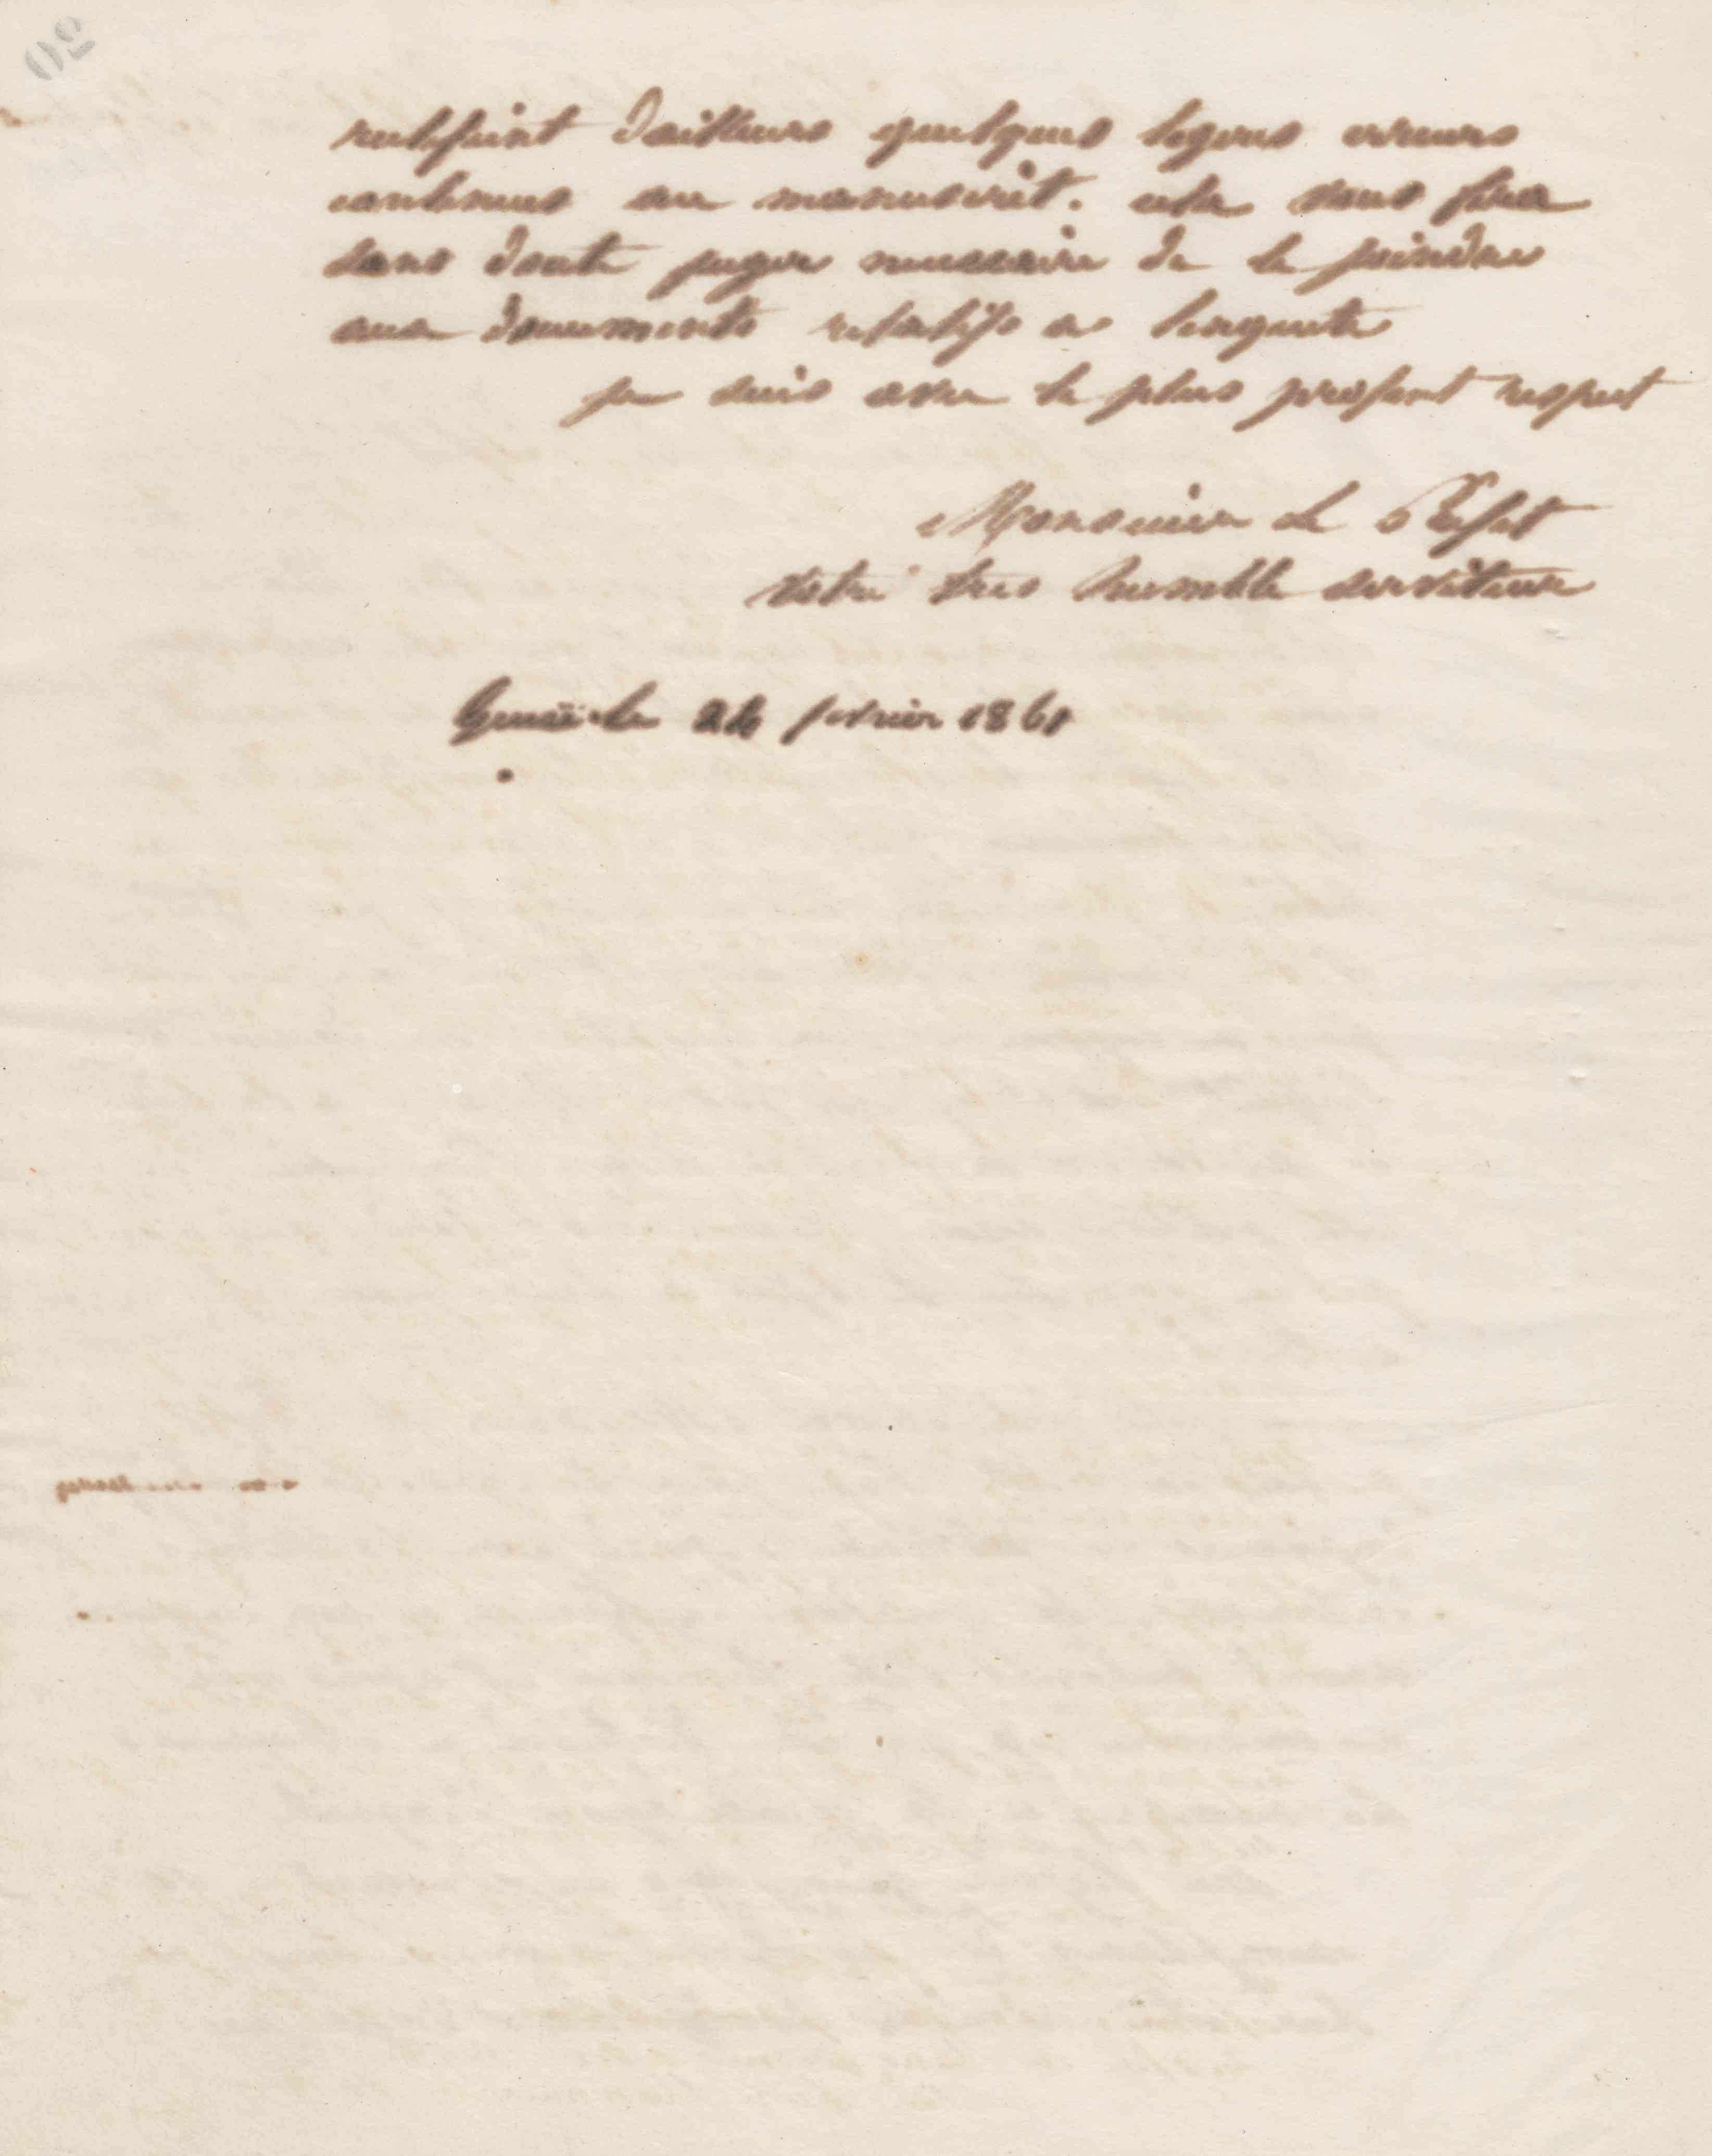 rectifiant dailleurs quelques legeres erreurs
contenues au manuscrit. cela vous fera
sans doute juger necessaire de le joindre
aux documents relatifs a lenquete
je suis avec le plus profont respect
Monsieur le Préfet
votre tres humble serviteur
le 24 fevrier 1861